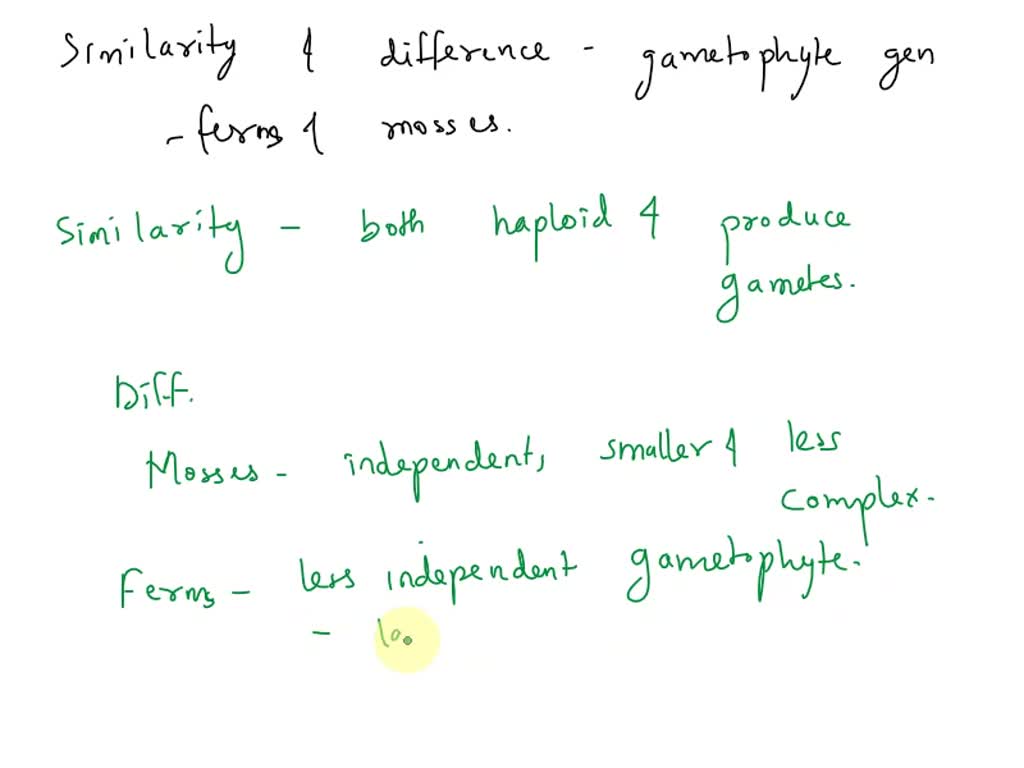 Similarity & difference - gametophyte gen
- ferns & mosses.
Similarity - both haploid & produce
gametes.
Diff.
Mosses - independent, smaller & less
complex.
Ferns - less independent gametophyte.
- la